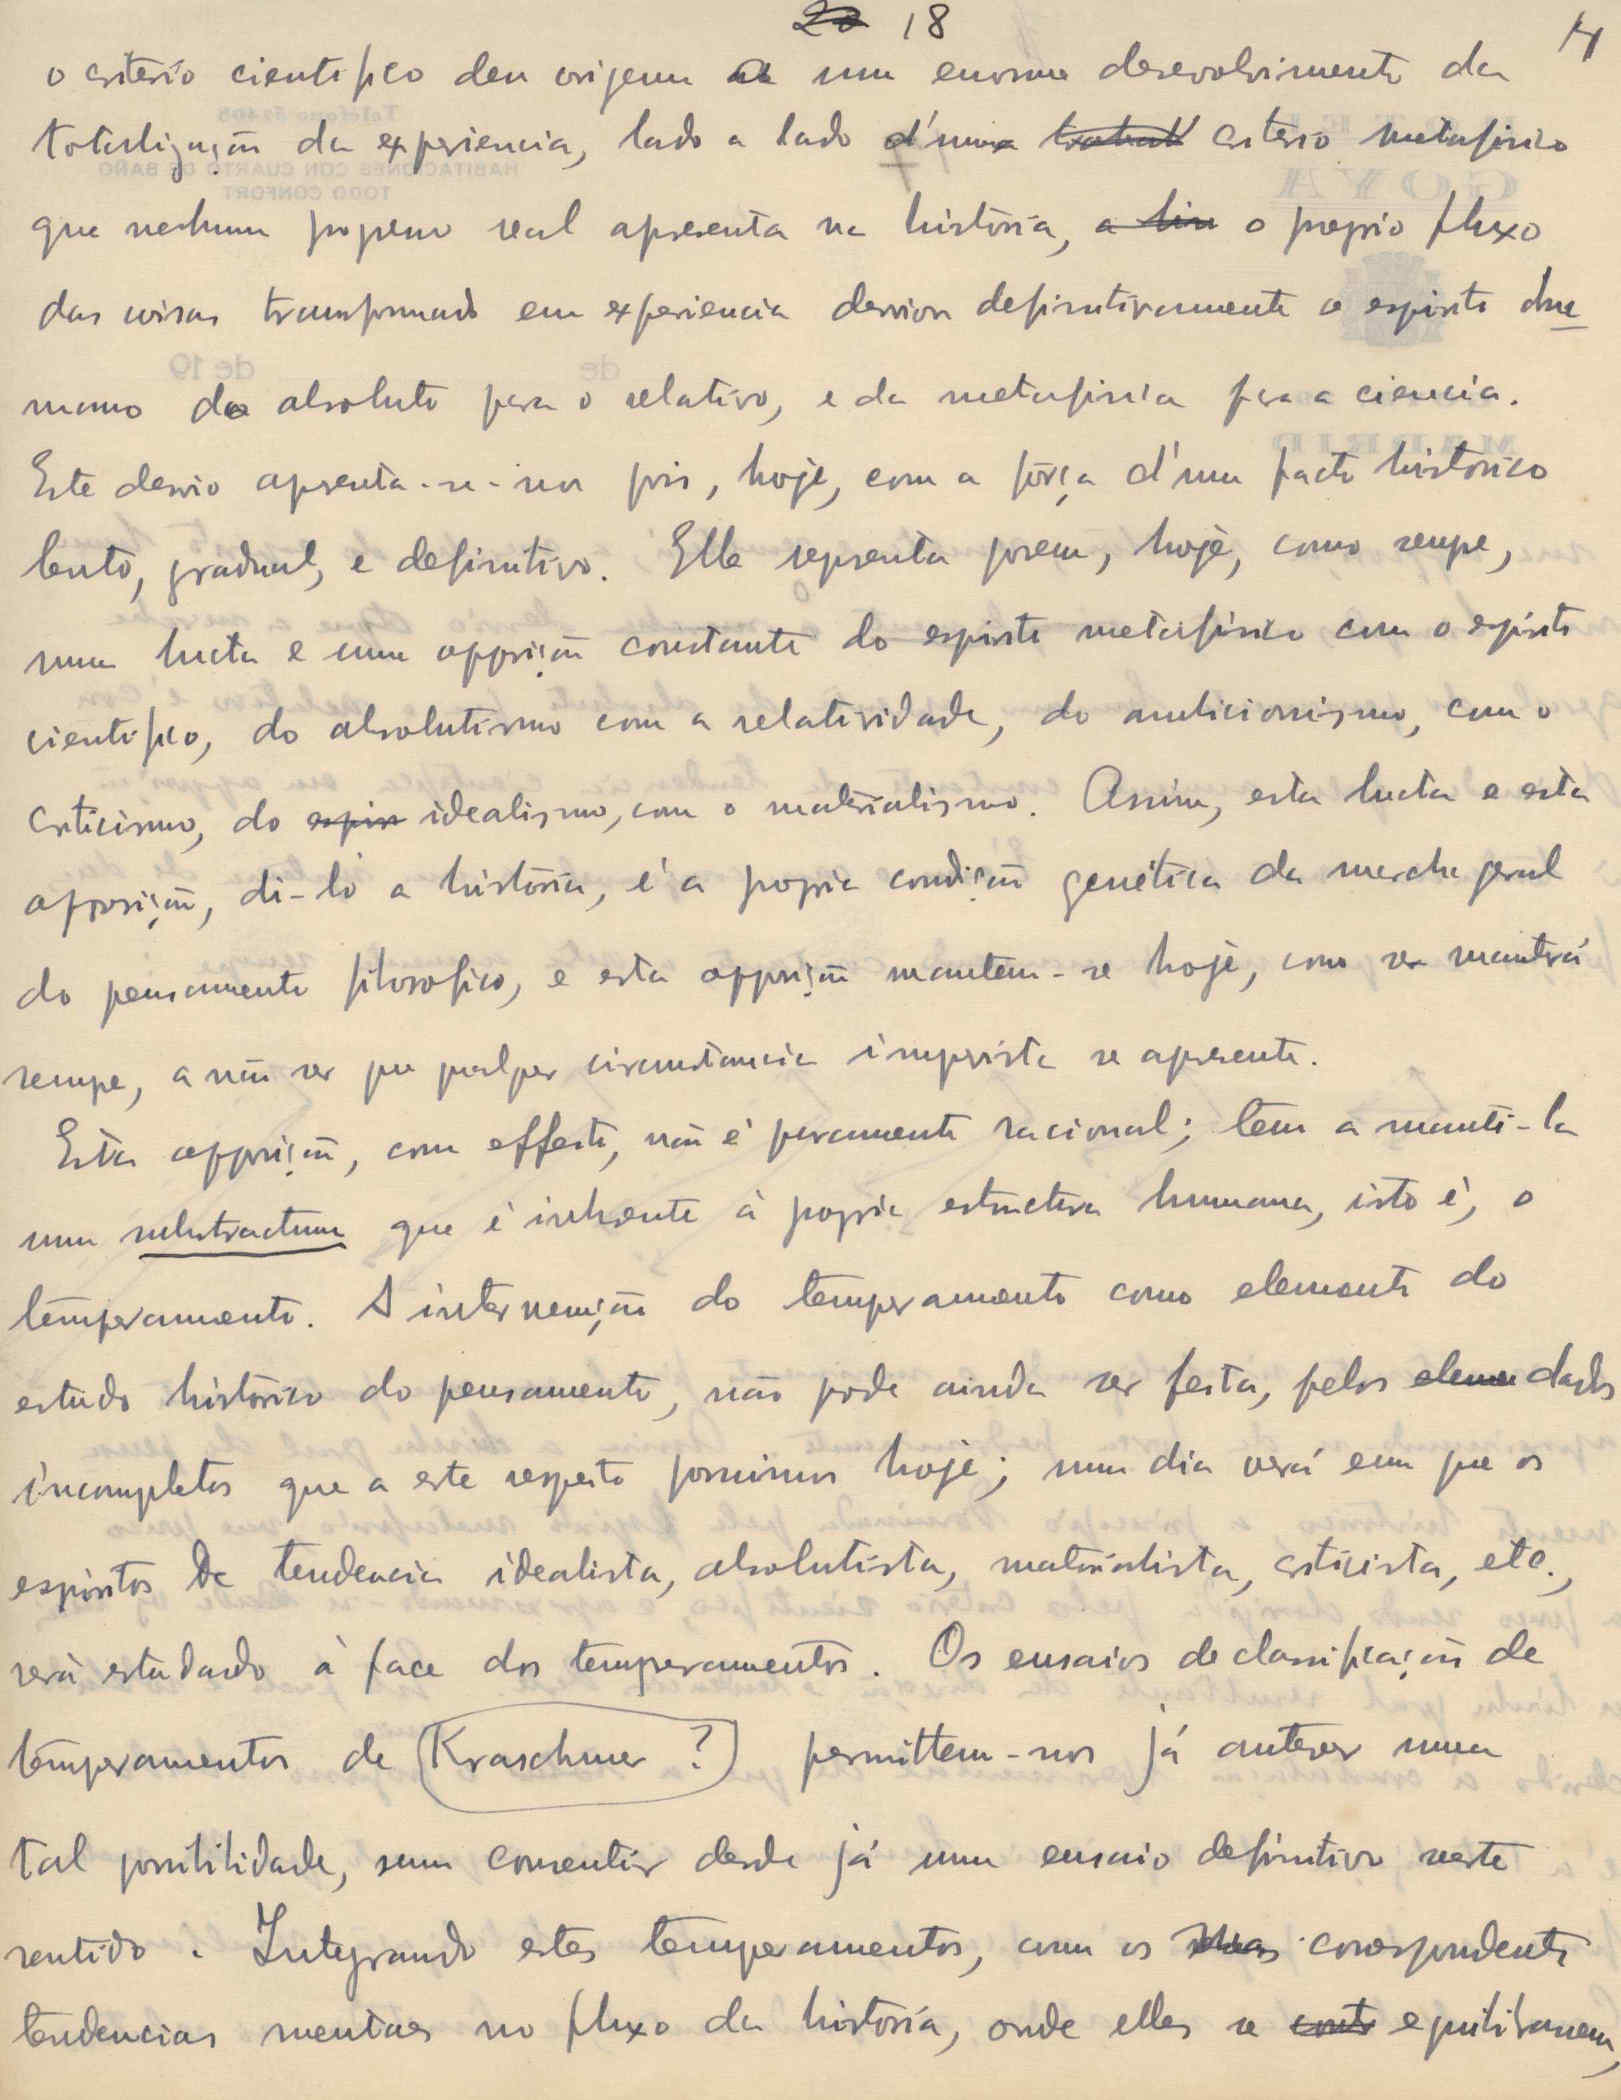 20 18 14
o criterio cientifico deu origem a um enorme desevolvimento da
totalização da experiencia, lado a lado d'um criterio metafisico
que nenhum progresso real apresenta na história, a hin o proprio fluxo
das coisas transformado em experiencia desviou definitivamente o espirito hu
mano do absoluto para o relativo, e da metafisica para a ciencia.
Este desvio apresenta-se-nos pois, hoje, com a fôrça d'um facto historico
lento, gradual, e definitivo. Elle representa porem, hoje, como sempre,
uma lucta e uma opposição constante do espirito metafisico com o espirito
cientifico, do absolutismo com a relatividade, do com o
criticismo, do espir idealismo, com o materialismo. Assim, esta lucta e esta
opposição, di-lo a história, é a propria condição genética da marcha geral
do pensamento filosofico, e esta opposição mantem-se hoje, como se manterá
sempre, a não ser que qualquer circumstancia imprevista se apresente.
Esta opposição, com effeito, não é puramente racional; tem a mantê-la
um substractum que é inherente à propria estructura humana, isto é, o
temperamento. A intervenção do temperamento como elemento do
estudo histórico do pensamento, não pode ainda ser feita, pelos eleme dados
incompletos que a este respeito possuimos hoje; um dia virá em que os
espiritos de tendencia idealista, absolutista, materialista, criticista, etc.,
será estudado à face dos temperamentos. Os ensaios de classificação de
temperamentos de (Kraschmer ?) permittem-nos já antever uma
tal possibilidade, sem consentir desde já um ensaio definitivo neste
sentido. Integrando estes temperamentos, com os suas correspondente
tendencias mentaes no fluxo da história, onde elles se contr equilibrarem,